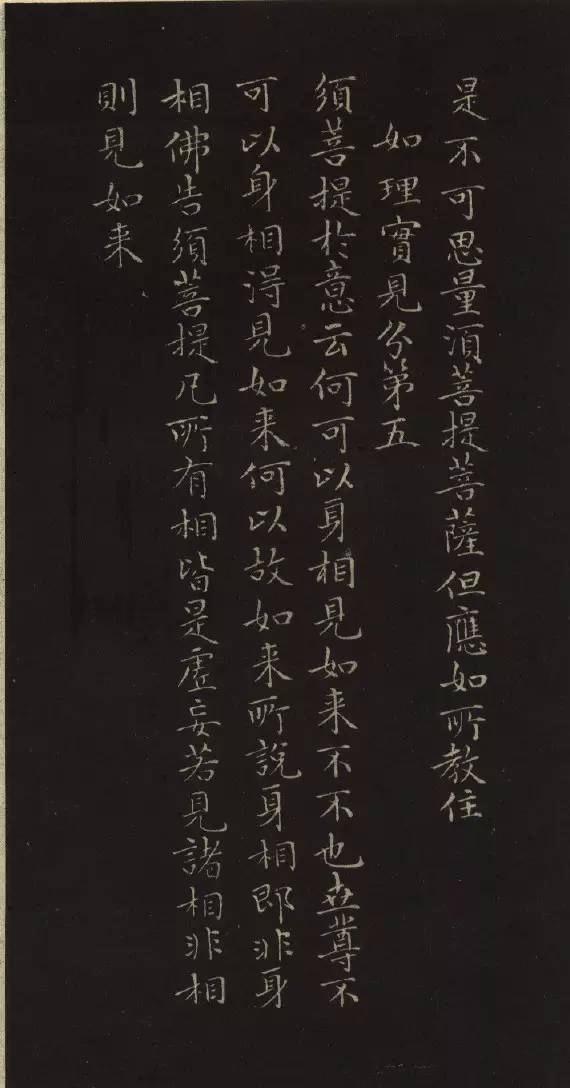 是不可思量須菩提菩薩但應如所教住
如理實見分第五
須菩提於意云何可以身相見如来不不也世尊不
可以身相得見如来何以故如来所說身相即非身
相佛告須菩提凡所有相皆是虛妄若見諸相非相
則見如来